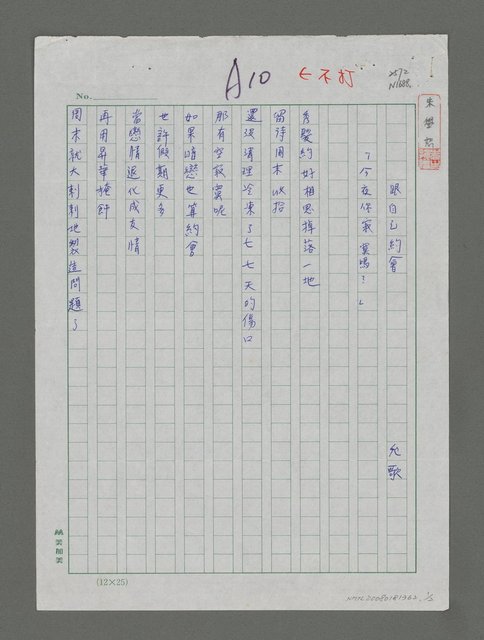 A10
←不打
2572
N1688
No.
朱學恕
跟自己約會
允歌
「今夜你寂寞嗎?」
秀髮約好相思掉落一地
留待周末收拾
還沒清理冷凍了七七天的傷口
那有空寂寞呢
如果暗戀也算約會
也許假期更多
當戀情退化成友情
再用昇華掩飾
周末就大剌剌地製造問題了
(12×25)